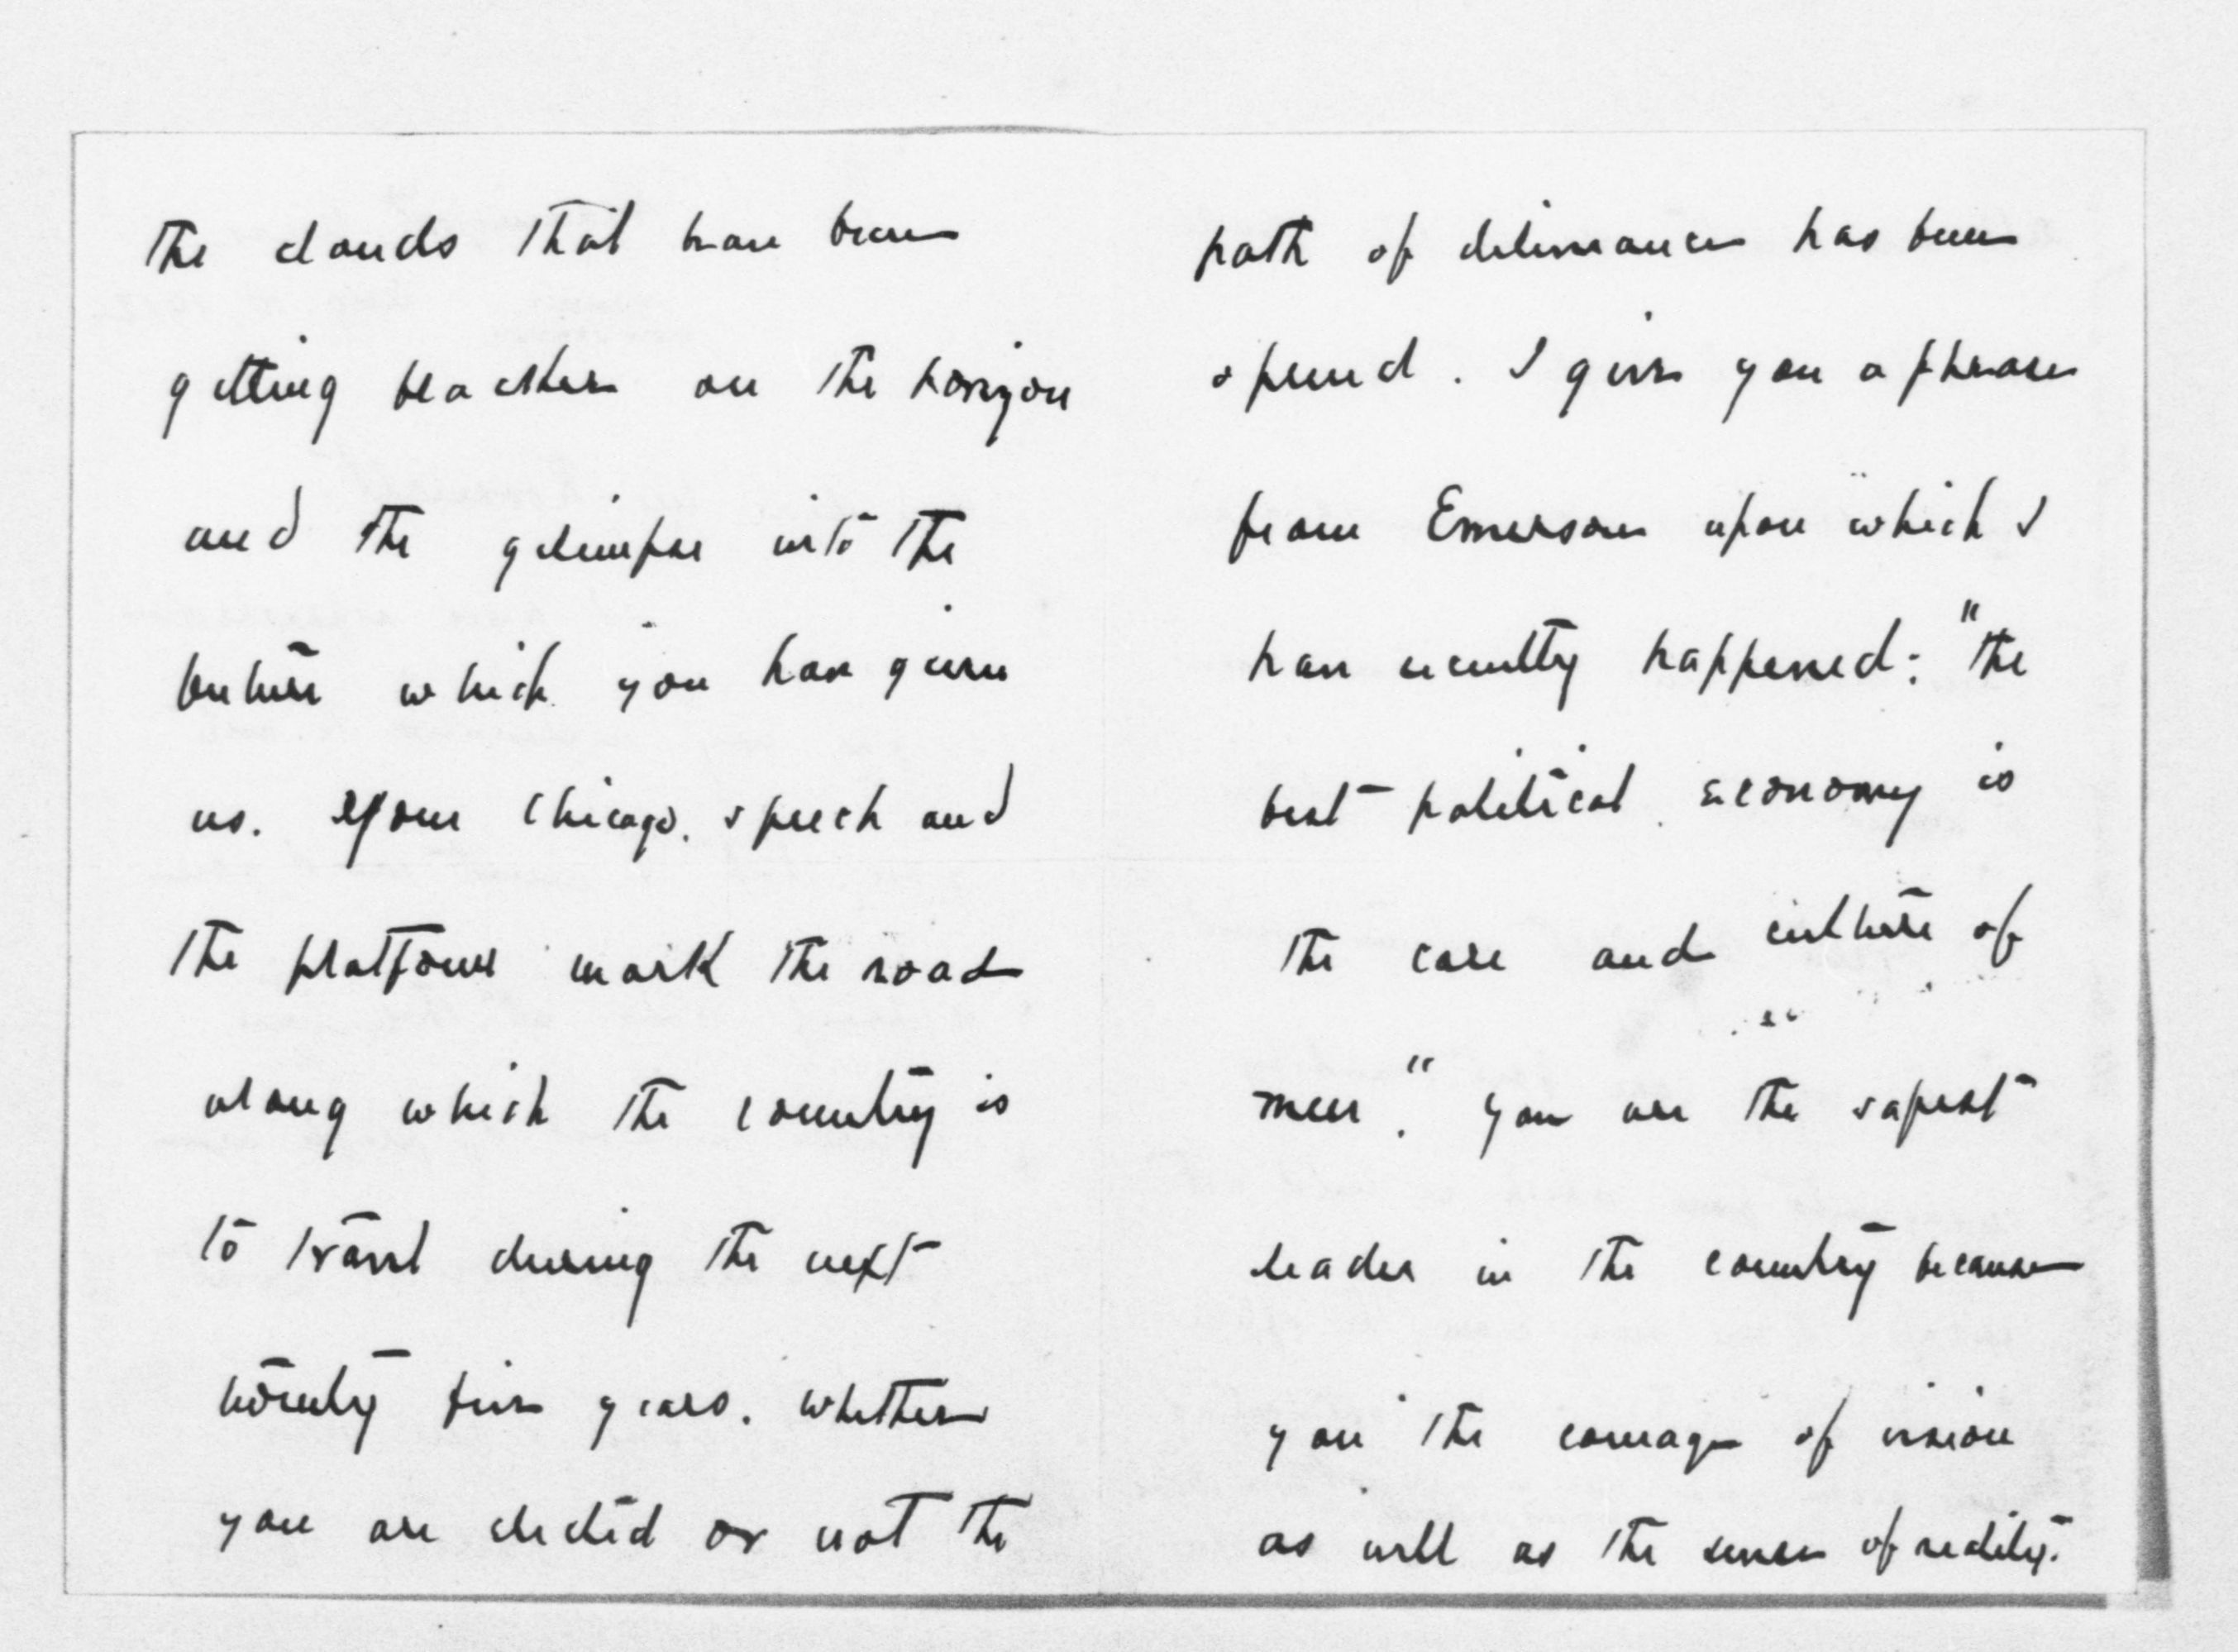 the clouds that have been
getting blacker on the horizon
and the glimpse into the
future which you have given
us. Your Chicago speech and
the platform mark the road
along which the country is
to travel during the next
twenty five years. Whether
you are elected or not the
path of deliverance has been
opened. I give you a phrase
from Emerson upon which I
have recently happened: "the
best political economy is
the care and culture of
men". You are the safest
leader in the country because
you the courage of vision
as well as the sense of reality.